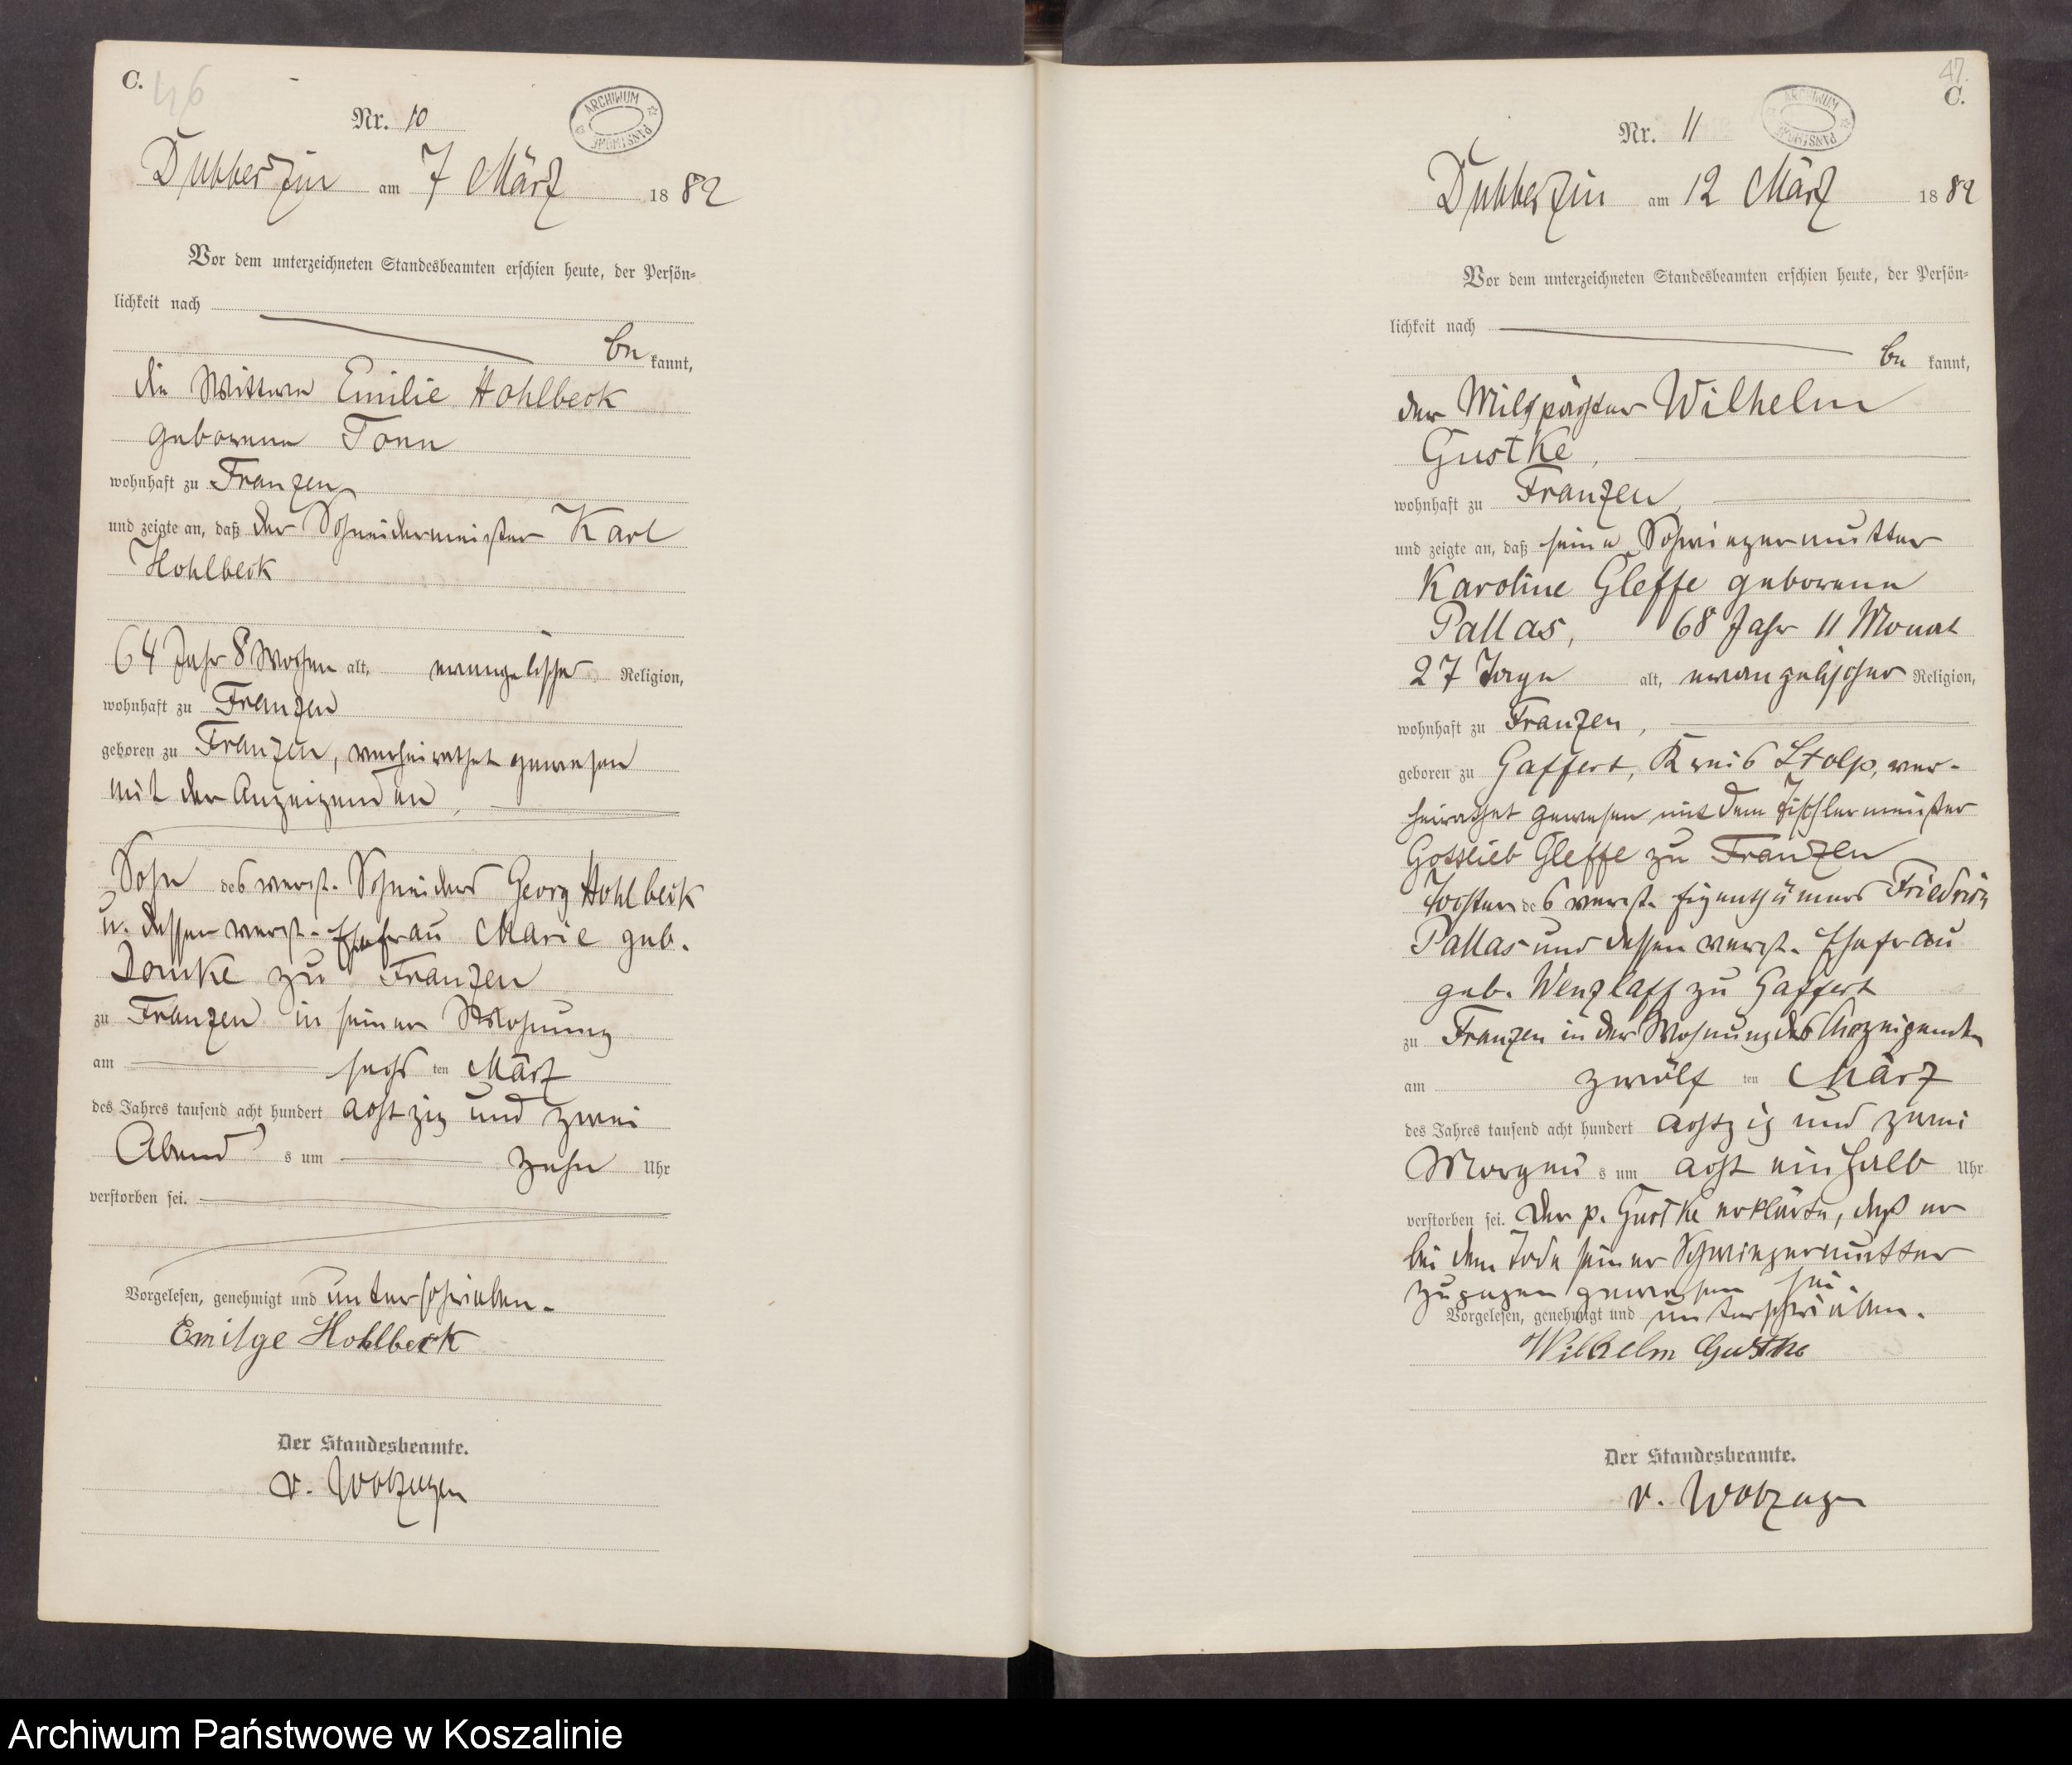 C.
46
Nr. 10
ARCHIWUM PAŃSTWOWE
Dubberzin am 7 März 1882
Vor dem unterzeichneten Standesbeamten erschien heute, der Persön-
lichkeit nach
bekannt,
die Wittwe Emilie Hohlbeck
geborene Tonn
wohnhaft zu Franzen
und zeigte an, daß der Schneidermeister Karl
Hohlbeck
64 Jahr 8 Wochen alt, evangelischer Religion,
wohnhaft zu Franzen
geboren zu Franzen, verheirathet gewesen
mit der Anzeigenden,
Sohn des verst. Schneiders Georg Hohlbeck
u. dessen verst. Ehefrau Marie geb.
Domke zu Franzen
zu Franzen in seiner Wohnung
am sechsten März
des Jahres tausend acht hundert achtzig und zwei
Abends um zehn Uhr
verstorben sei.
Vorgelesen, genehmigt und unterschrieben.
Emilge Hohlbeck
Der Standesbeamte.
v. Wobzugen
47.
C.
Nr. 11
ARCHIWUM PAŃSTWOWE
Dubberzin am 12 März 1882
Vor dem unterzeichneten Standesbeamten erschien heute, der Persön-
lichkeit nach
bekannt,
der Milchpächter Wilhelm
Gustke,
wohnhaft zu Franzen,
und zeigte an, daß seine Schwiegermutter
Karoline Gleffe geborene
Pallas, 68 Jahr 11 Monat
27 Tage alt, evangelischer Religion,
wohnhaft zu Franzen,
geboren zu Gaffert, Kreis Stolp, ver-
heirathet gewesen mit dem Tischlermeister
Gottlieb Gleffe zu Franzen
Tochter des verst. Eigenthümers Friedrich
Pallas und dessen verst. Ehefrau
geb. Wenzlaff zu Gaffert
zu Franzen in der Wohnung des Anzeigenden
am zwölften März
des Jahres tausend acht hundert achtzig und zwei
Morgens um acht einhalb Uhr
verstorben sei. Der p. Gustke erklärte, daß er
bei dem Tode seiner Schwiegermutter
zugegen gewesen sei.
Vorgelesen, genehmigt und unterschrieben.
Wilhelm Gustke
Der Standesbeamte.
v. Wobzugen
Archiwum Państwowe w Koszalinie